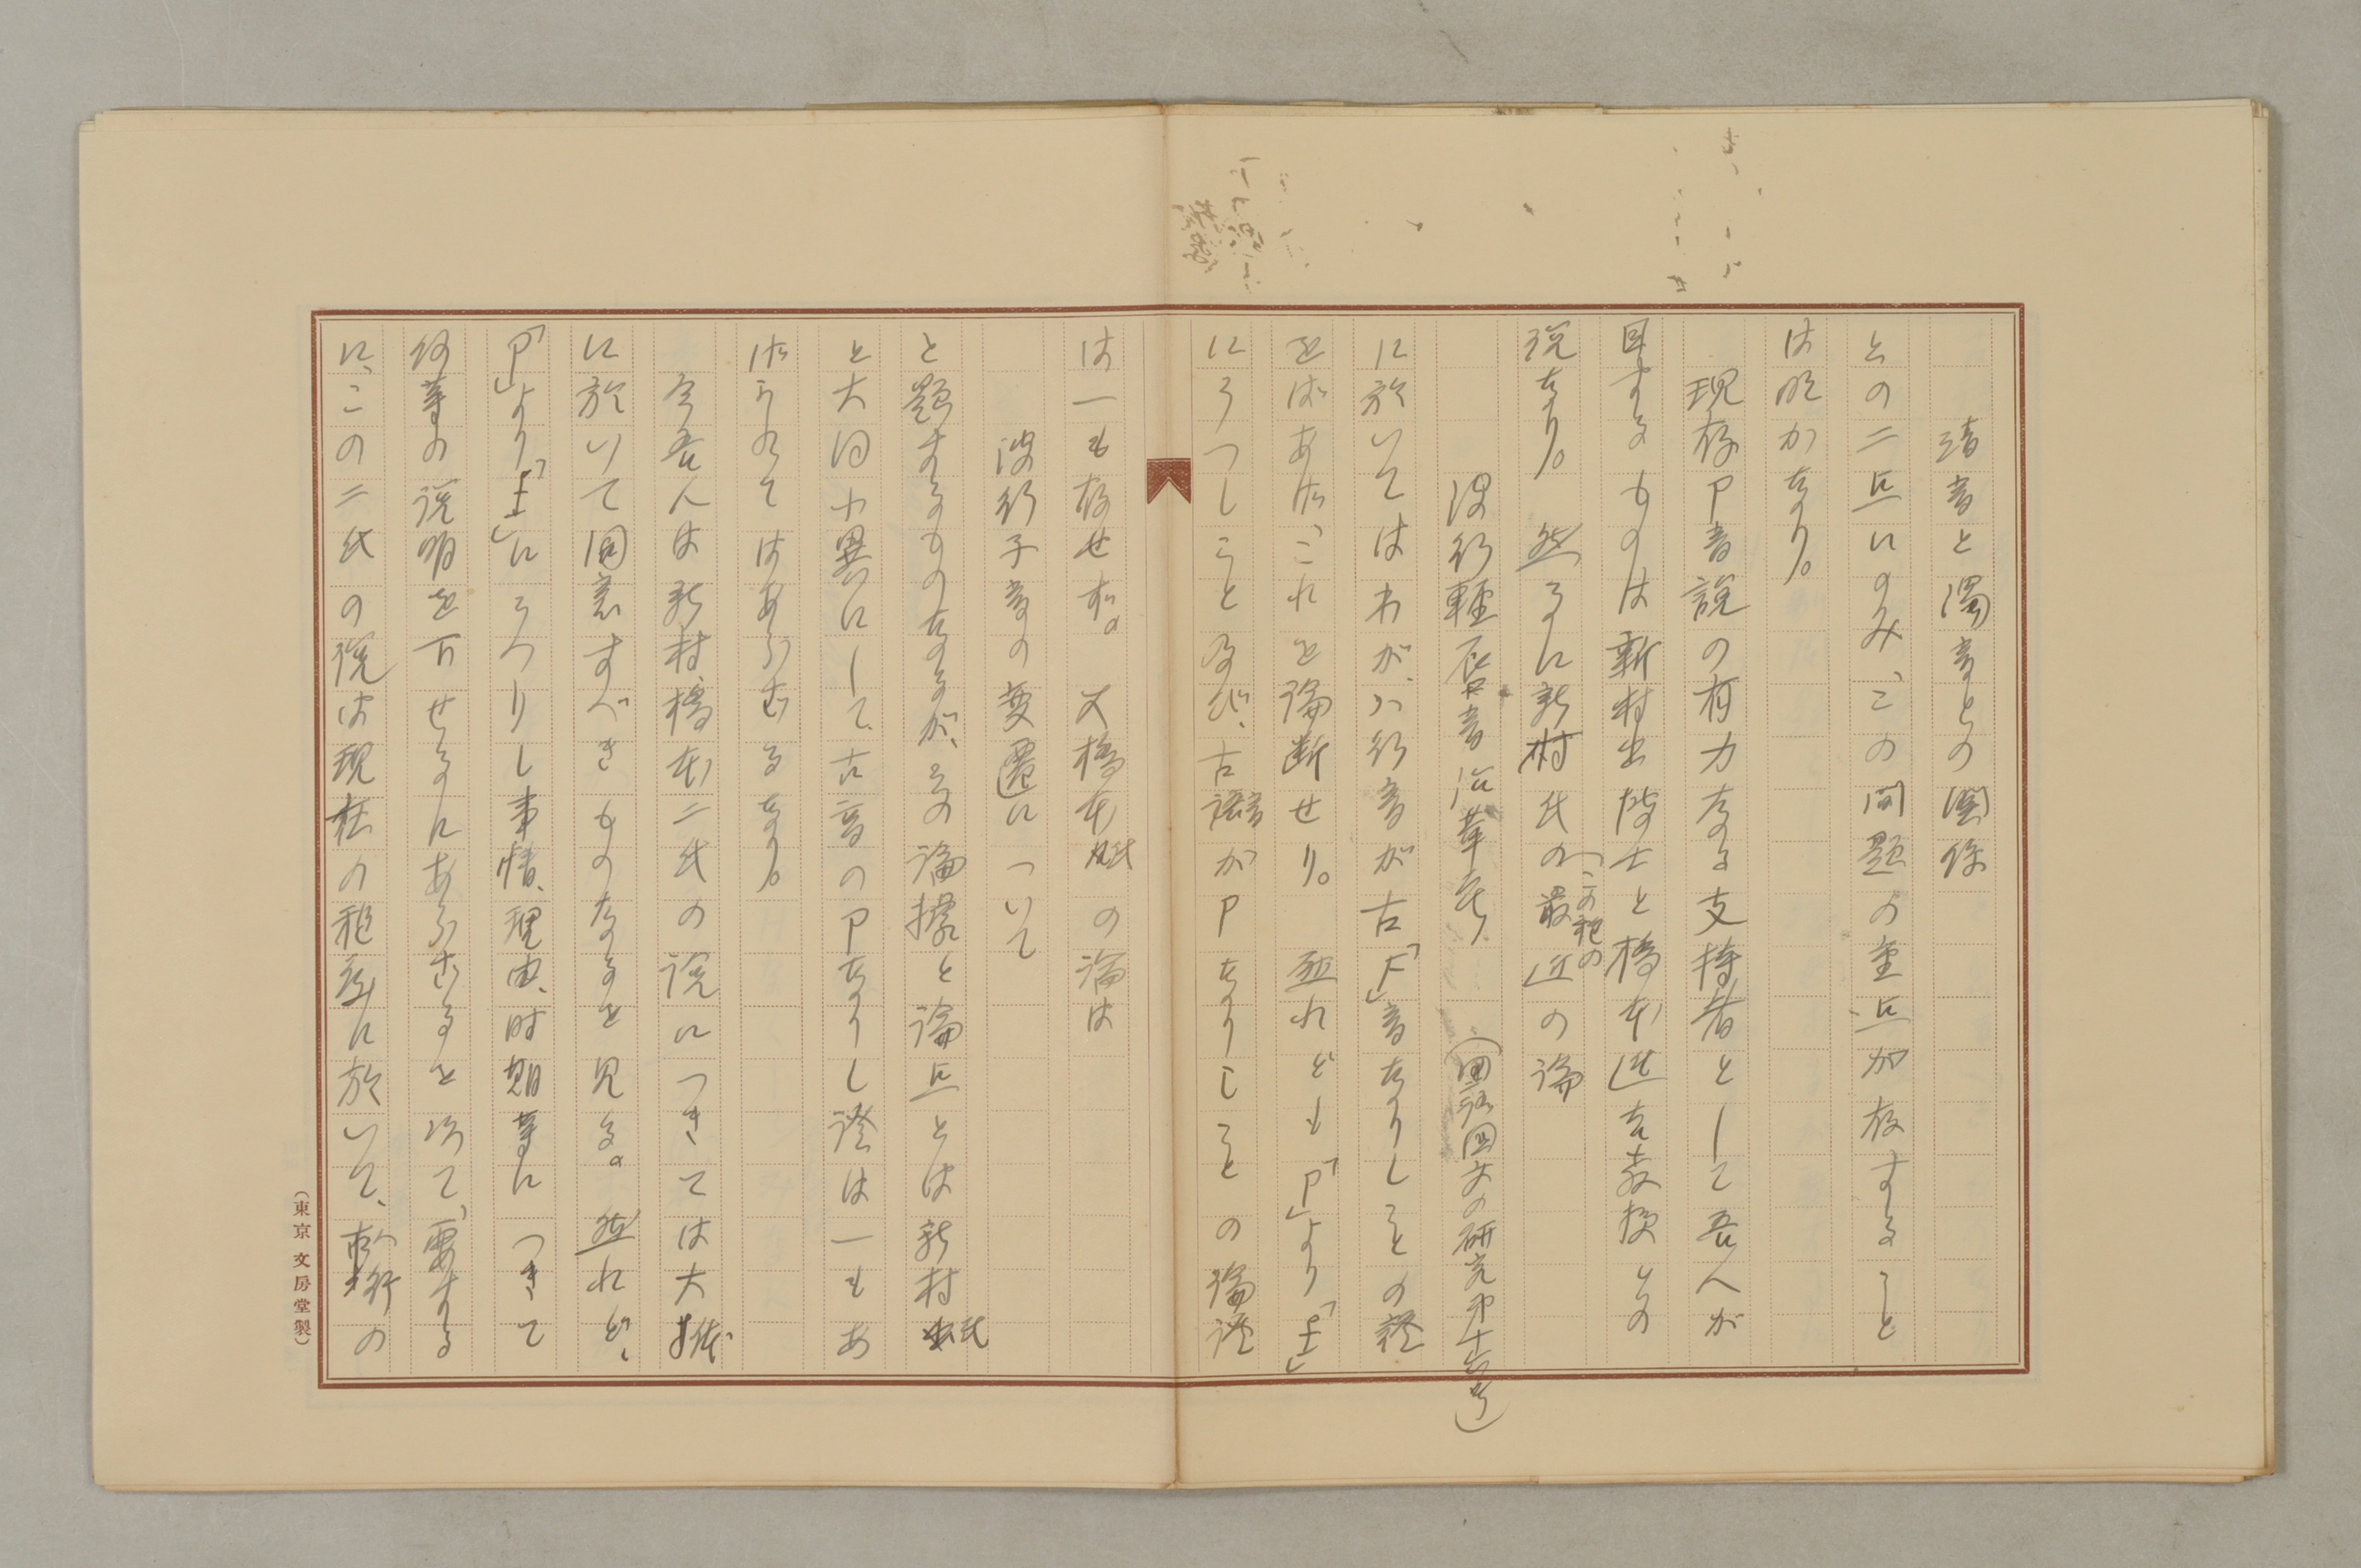 清音と濁音との関係
との二点にのみ、この問題の重点が存すること
は明かなり。
現存P音説の有力なる支持者として吾人が
目するものは新村出博士と橋本進吉教授との
説なり。然るに新村氏の最近の論
(この種の
波行軽唇音沿革考 (国語国文の研究第十六号)
に於いてはわが、ハ行音が古「F」音なりしことの証
をばあげ、これを論断せり。然れども「P」より「F」
にうつしことの及び、古音がPなりしことの論証
は一も存せず。又橋本氏の論は
波行子音の変遷について
と題するものなるが、その論拠と論点とは新村氏
と大同小異にして、古音のPなりし證は一もあ
げられてはあらざるなり。
今吾人は新村橋本二氏の説につきては大体
に於いて同意すべきものなるを見る。然れど、
「P」より「F」にうつりし事情、理由、時期等につきて
何等の説明を下せるにあらざるを以て、要する
に、この二氏の説は現在の程度に於いて、軟行の
(東京 文房堂製)